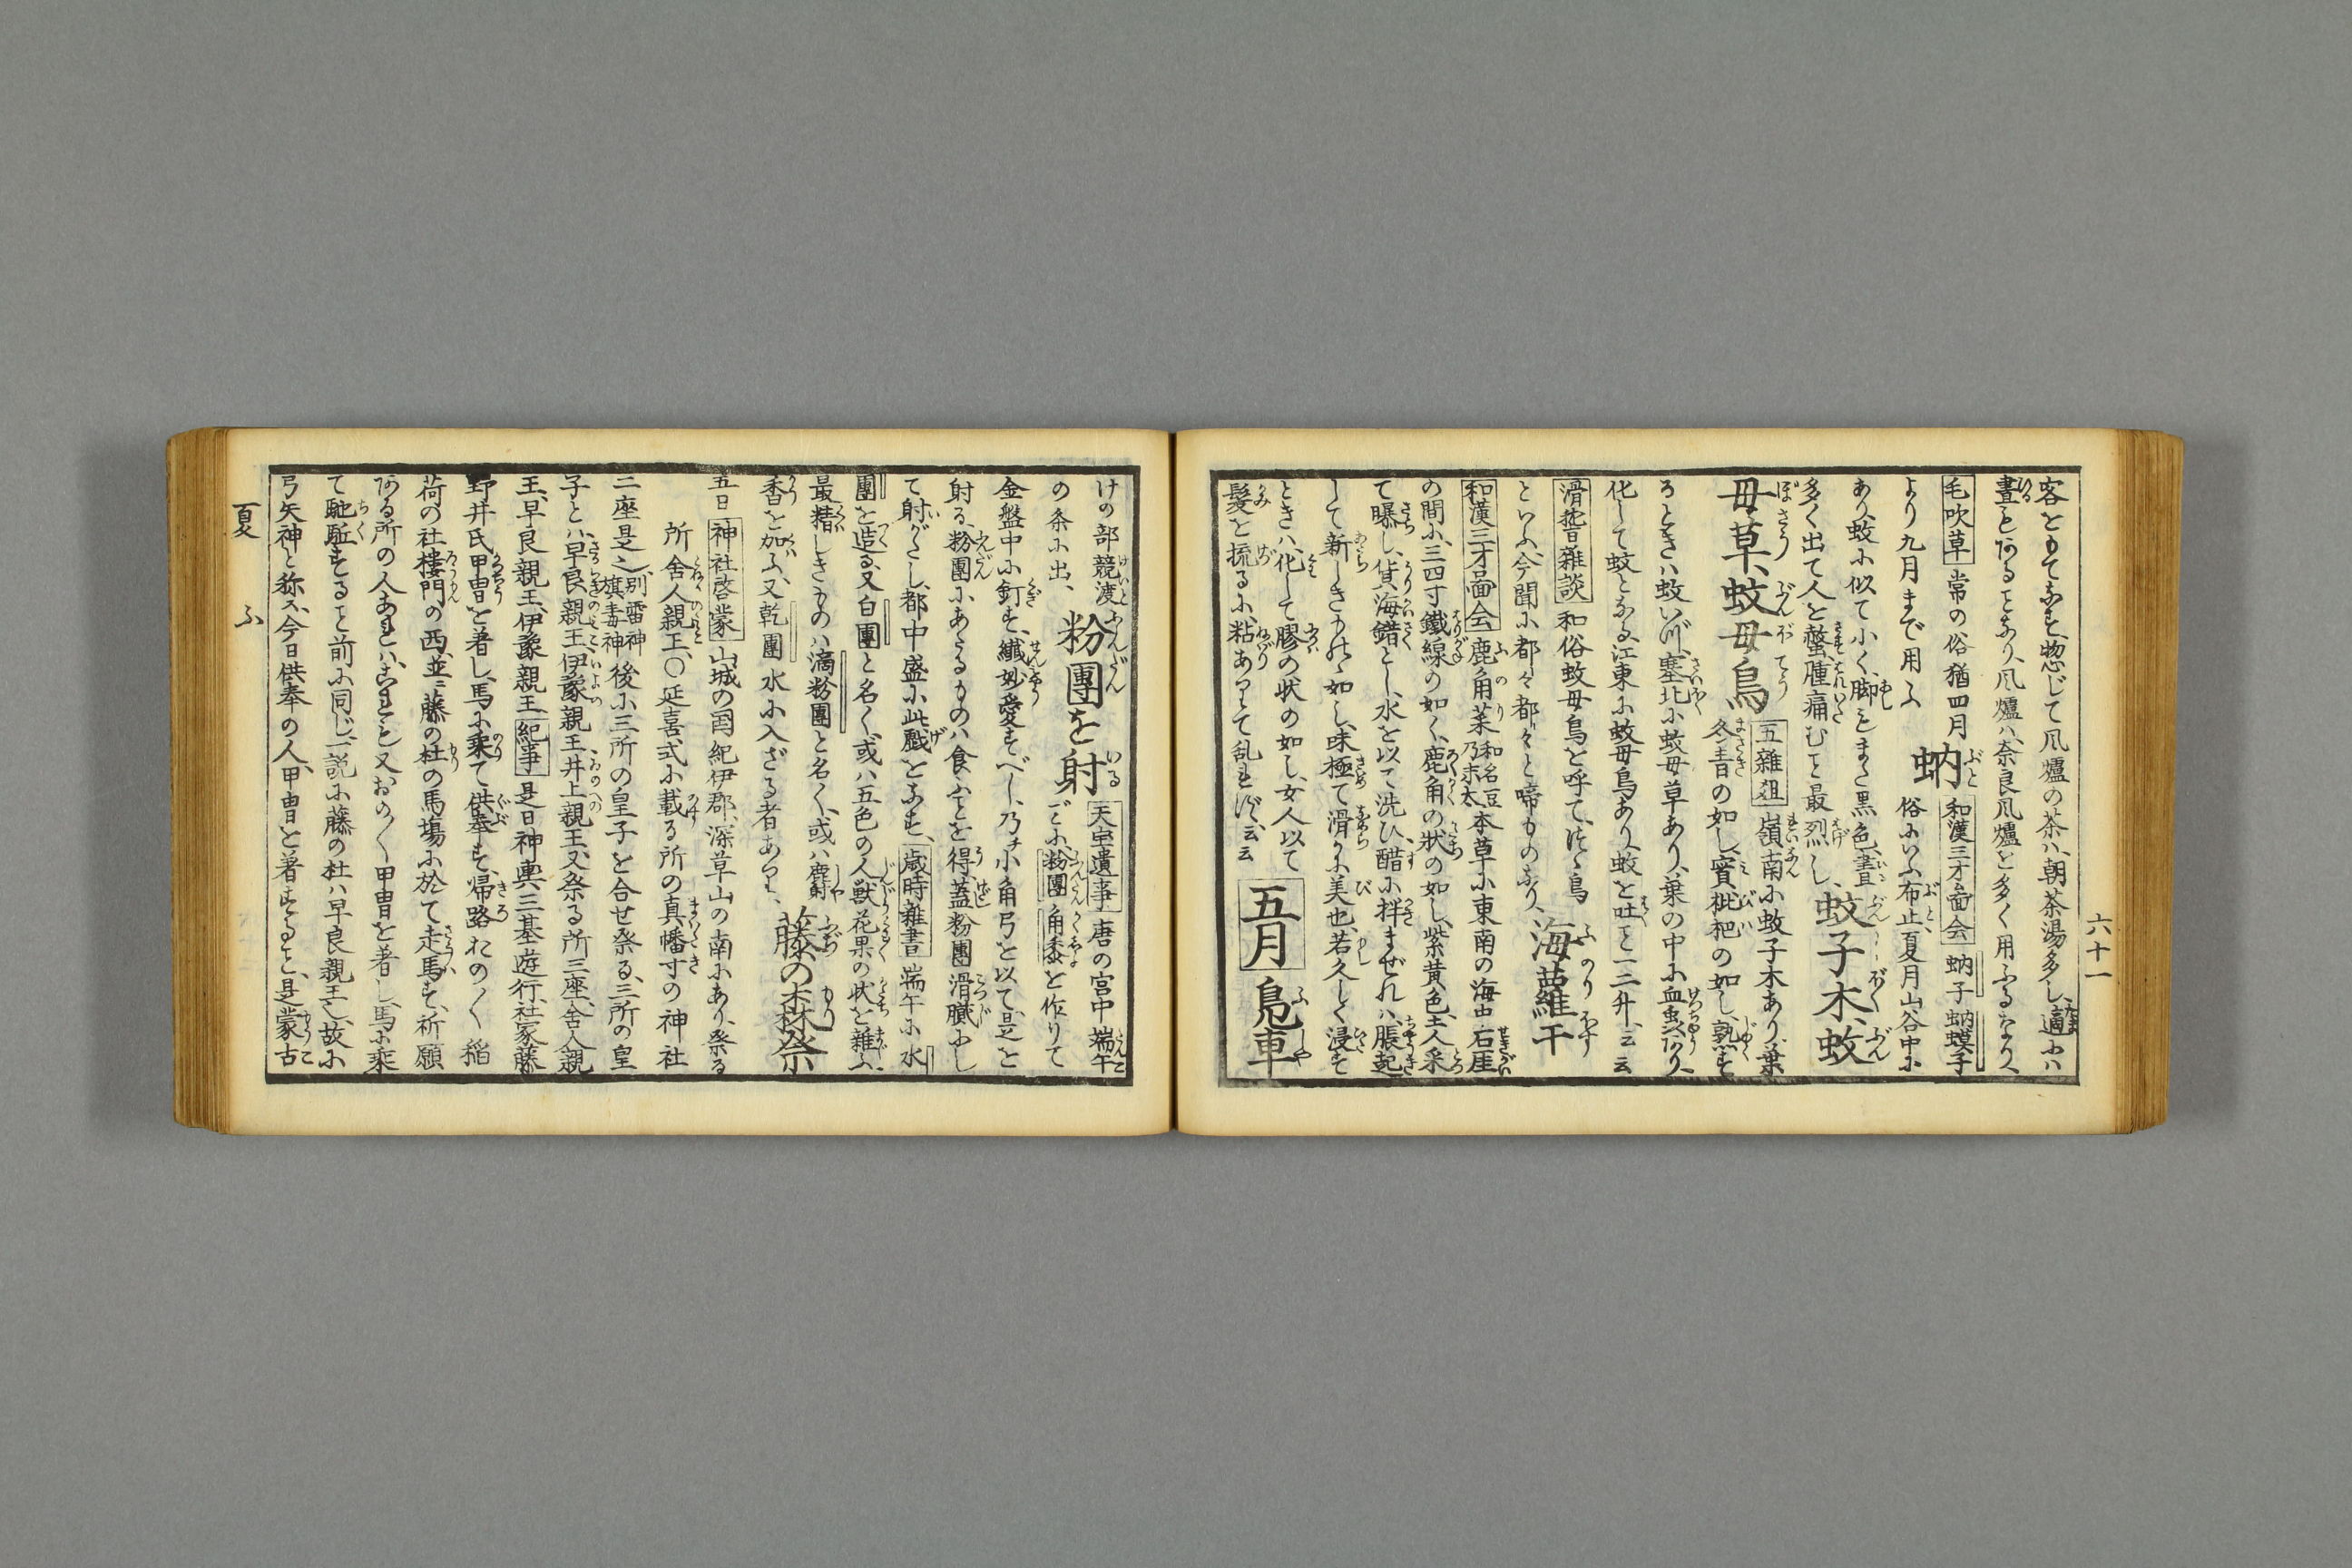 六十一
客ともてなす、惣じて風爐の茶ハ、朝茶湯多し、適々ハ
晝もあることなり、風爐ハ、奈良風爐を多く用ふるなり、
毛吹草 常の俗猶四月
より九月まで用ふ
蚋 和漢三才圖会 蚋子 蚋蟆子
俗にいふ布止、夏月山谷中に
あり、蚊に似て小く、脚もまた黒色、晝
多く出て人を螫、腫痛むこと最烈し、
蚊子木、蚊
母草、蚊母鳥 五雑俎 嶺南に蚊子木あり、葉
冬青の如し、實枇杷の如し、熟す
るときハ蚊いづ、塞北に蚊母草あり、葉の中に血虫あり、
化して蚊となる、江東に蚊母鳥あり、蚊を吐こと一二升、云云
滑稽雑談 和俗蚊母鳥を呼て、
といふ、今聞に都々都々と啼ものなり、
海蘿干
和漢三才圖会 鹿角菜 和名豆乃末太 本草に東南の海中石厓
の間に、三四寸鐵線の如く、鹿角の状の如し、紫黄色、土人采
て曝し、貨海錯とし、水を以て洗ひ、醋に拌まぜれハ脹起
して新しきものゝ如し、味極て滑かに美也、若久しく浸す
ときハ、化して膠の状の如し、女人以て
髪を梳るに、粘ありて乱れず、云云
五月 鳧車
けの部競渡
の条に出、
粉團を射る 天宝遺事 唐の宮中端午
ごに、粉團角黍を作りて
金盤中に釘す、纖妙愛すべし、乃チ小角弓を以て、是を
射る、粉團にあたるものハ食ふことを得、蓋粉團滑膩にし
て射がたし、都中盛に此戯をなす、歳時雑書 端午に水
團を造る、又白團と名く、或ハ五色の人獣花果の状を雑ふ、
最精しきものハ滴粉團と名く、或ハ麝
香を加ふ、又乾團水に入ざる者あり、
藤の森祭
五日 神社啓蒙 山城の国紀伊郡、深草山の南にあり、祭る
所舎人親王、〇延喜式に載る所の真幡寸の神社
二座是也、別雷神旗毒神 後に三所の皇子を合せ祭る、三所の皇
子とハ、早良親王、伊豫親王、井上親王、又祭る所三座、舎人親
王、早良親王、伊豫親王 紀事 是日神輿三基遊行、社家藤
野井氏甲冑を着し、馬に乗て供奉す、帰路おのく稲
荷の社樓門の西、並ニ藤の杜の馬場に於て走馬す、祈願
ある所の人あれハ、これも又おのく甲冑を着し、馬に乗
て馳駈すること前に同じ、一説に藤の杜ハ早良親王也、故に
弓矢神と称ス、今日供奉の人、甲冑を着すること、是蒙古
夏 ふ